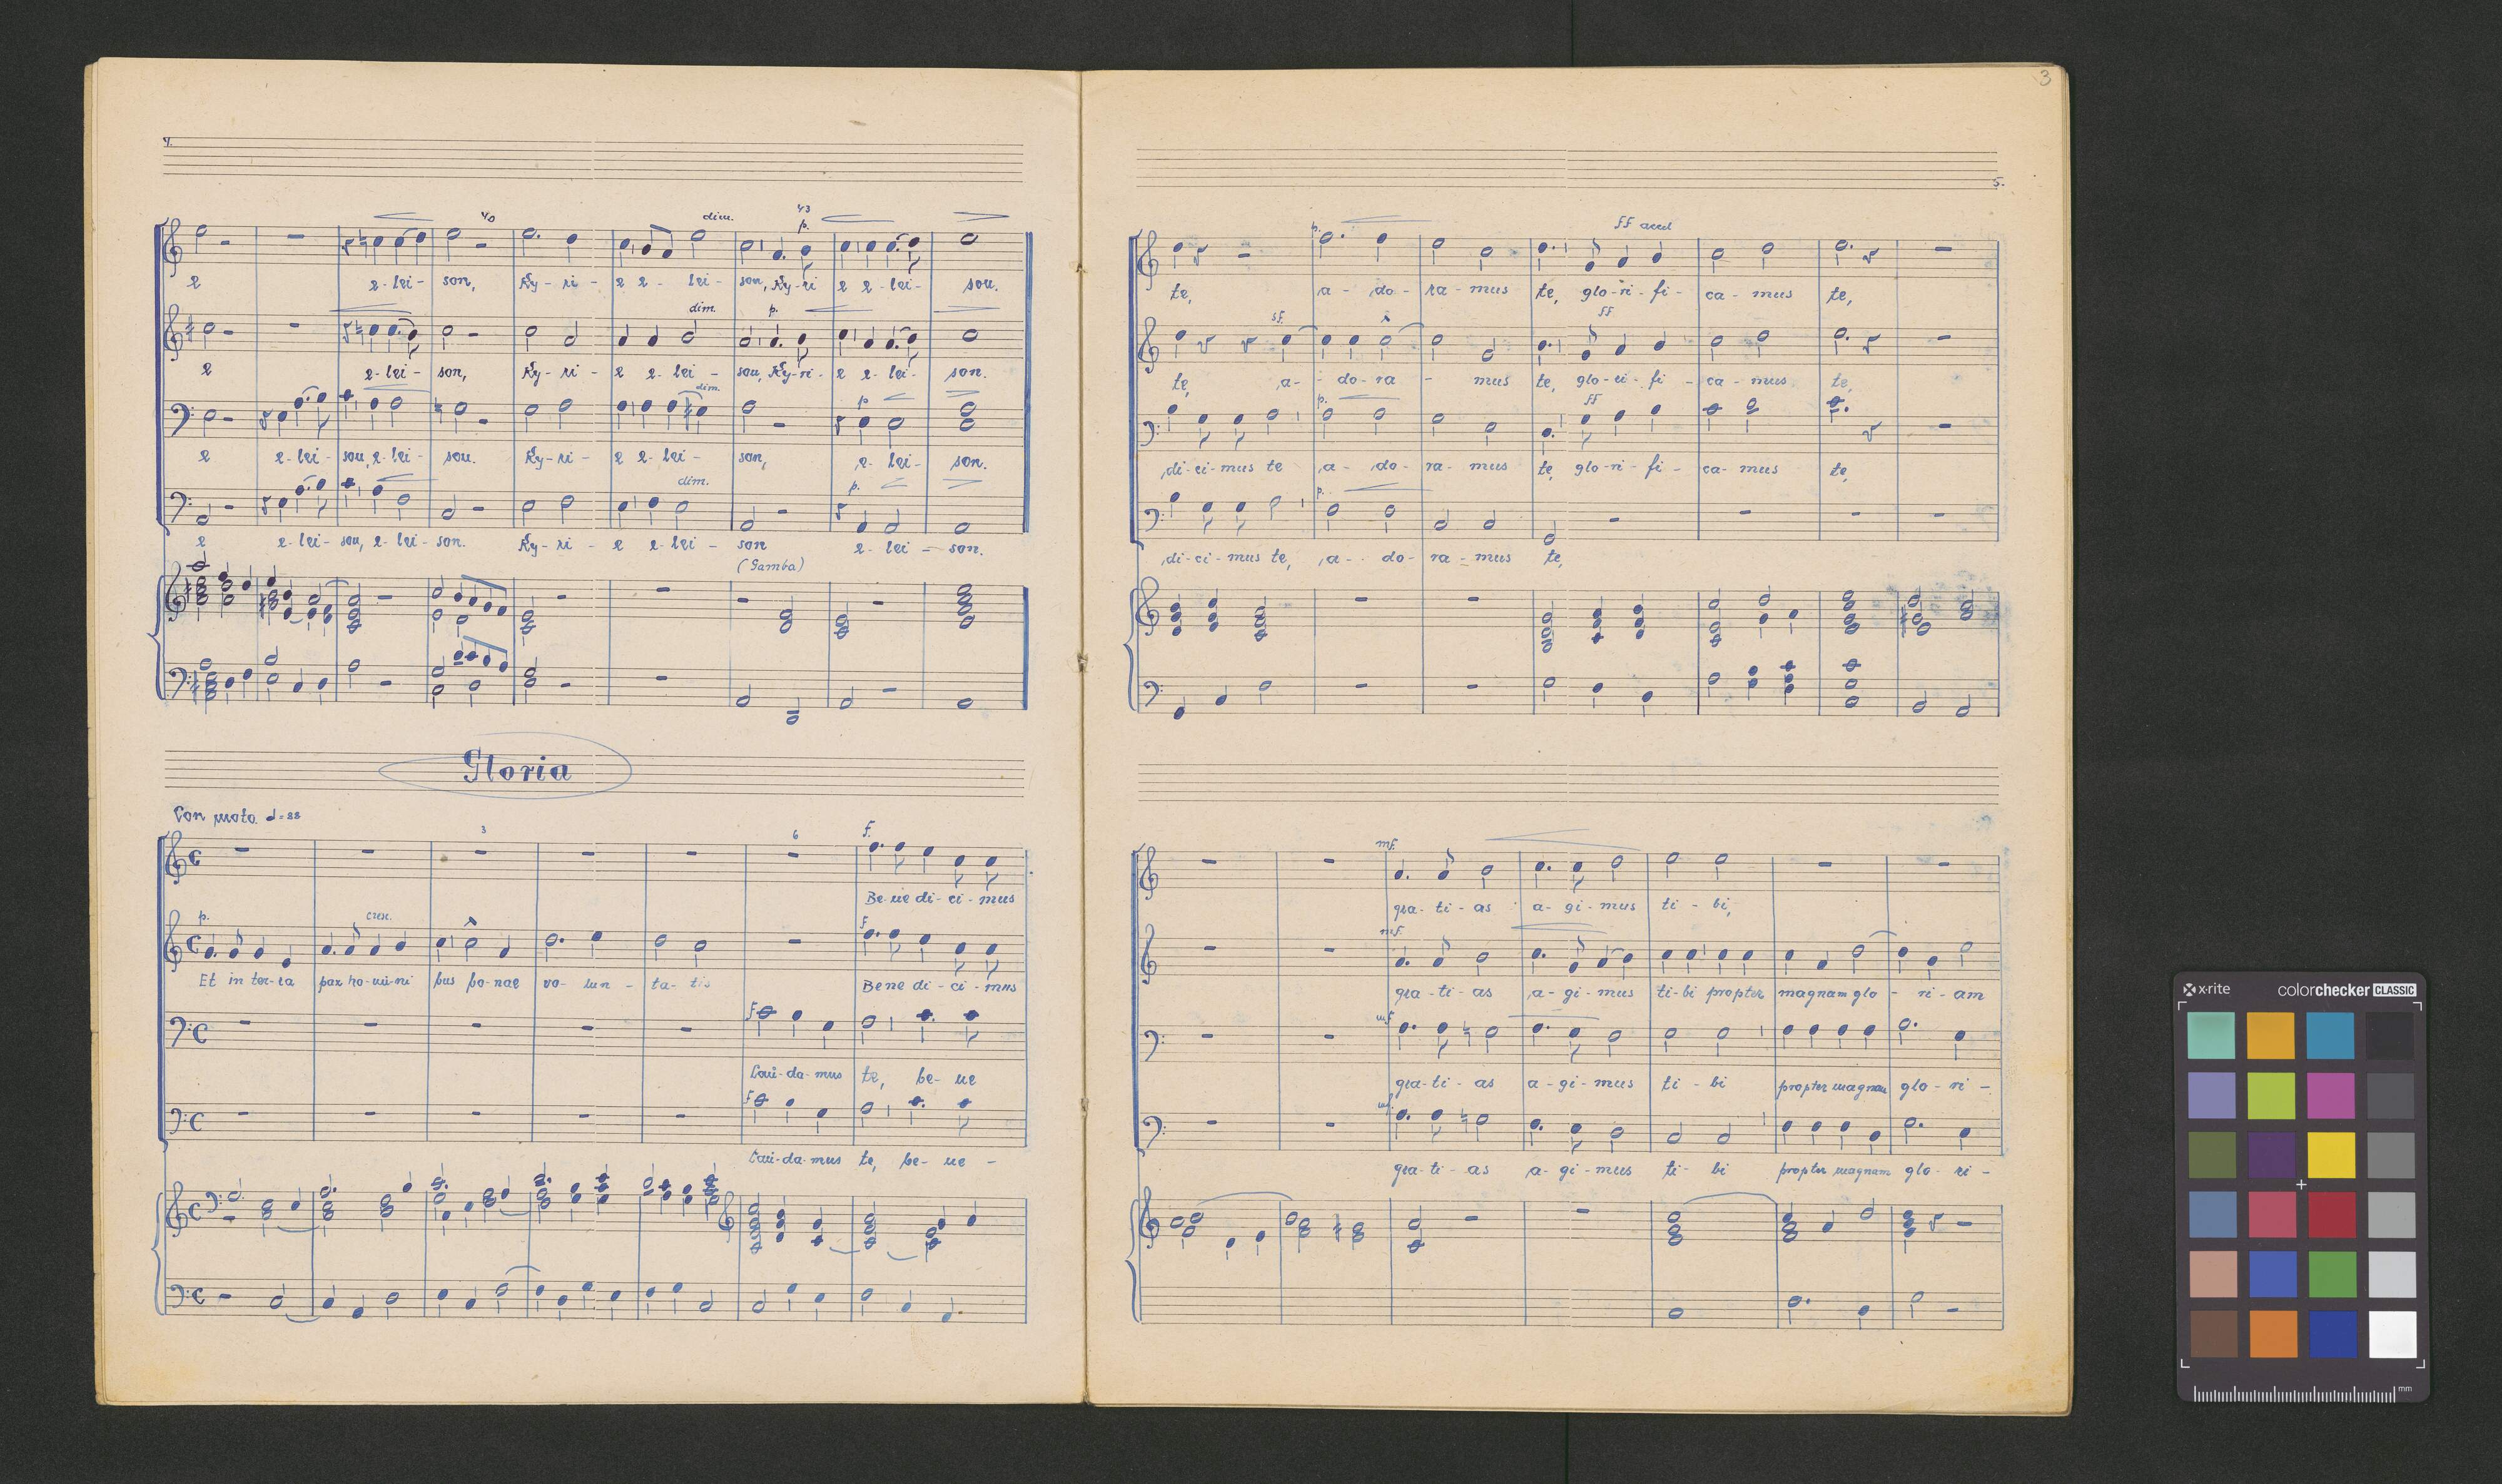 3
4.
40 dim. 43 p.
e e-lei- son, Ky-ri- e e- lei- son, Ky-ri e e-lei- son.
dim. p.
e e-lei- son, Ky-ri- e e-lei- son, Ky-ri- e e-lei- son.
dim. p
e e-lei- son, e-lei- son. Ky-ri- e e-lei- son, e- lei- son.
dim. p.
e e-lei- son, e-lei- son. Ky-ri- e e-lei- son e- lei- son.
(Gamba)
Gloria
Con moto. 𝅗𝅥=88
3 6 f.
Be-ne di-ci-mus
p. cresc. f
Et in ter-ra pax ho-mi-ni bus bo-nae vo- lun- ta- tis Bene di-ci-mus
f
Lau-da-mus te, be- ne
f
Lau-da-mus te, be- ne -
5.
p. ff accel
te, a- do- ra-mus te, glo-ri-fi- ca- mus te,
sf. ff
te, a- do-ra - mus te, glo-ri-fi- ca-mus te,
p. ff
di-ci-mus te a- do- ra-mus te glo-ri-fi- ca-mus te,
p.
di-ci-mus te, a- do- ra-mus te,
mf.
gra-ti-as a-gi-mus ti-bi,
mf.
gra-ti-as a-gi-mus ti-bi propter magnam glo - ri-am
mf
gra-ti-as a-gi-mus ti-bi propter magnam glo-ri-
mf
gra-ti-as a-gi-mus ti-bi propter magnam glo-ri-
x-rite colorchecker CLASSIC
mm